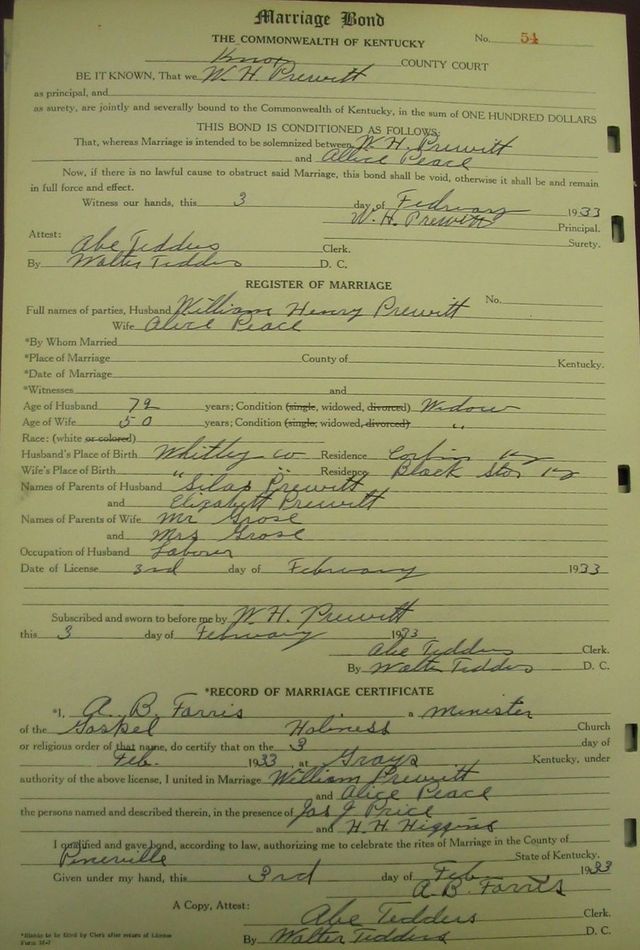 Marriage Bond
THE COMMONWEALTH OF KENTUCKY No. 54
Knox COUNTY COURT
BE IT KNOWN, That we W. H. Prewitt
as principal, and
as surety, are jointly and severally bound to the Commonwealth of Kentucky, in the sum of ONE HUNDRED DOLLARS
THIS BOND IS CONDITIONED AS FOLLOWS:
That, whereas Marriage is intended to be solemnized between W. H. Prewitt
and Alice Peace
Now, if there is no lawful cause to obstruct said Marriage, this bond shall be void, otherwise it shall be and remain
in full force and effect.
Witness our hands, this 3 day of February 1933
W. H. Prewitt Principal.
Surety.
Attest:
Abe Tedders Clerk.
By Walter Tedders D. C.
REGISTER OF MARRIAGE
No.
Full names of parties, Husband William Henry Prewitt
Wife Alice Peace
*By Whom Married
*Place of Marriage County of Kentucky.
*Date of Marriage
*Witnesses and
Age of Husband 72 years; Condition (single, widowed, divorced) Widow
Age of Wife 50 years; Condition (single, widowed, divorced) "
Race: (white or colored)
Husband's Place of Birth Whitley co Residence Corbin Ky
Wife's Place of Birth " " Residence Black Ky
Names of Parents of Husband Silas Prewitt
and Elizabeth Prewitt
Names of Parents of Wife Mr Grose
and Mrs Grose
Occupation of Husband Laborer
Date of License 3rd day of February 1933
Subscribed and sworn to before me by W. H. Prewitt
this 3 day of February 1933
Abe Tedders Clerk.
By Walter Tedders D. C.
*RECORD OF MARRIAGE CERTIFICATE
*I, A. B. Farris a minister
of the Gospel Holiness Church
or religious order of that name, do certify that on the 3 day of
Feb. 1933, at Grays Kentucky, under
authority of the above license, I united in Marriage William Prewitt
and Alice Peace
the persons named and described therein, in the presence of Jas J Price
and H. H. Higgins
I qualified and gave bond, according to law, authorizing me to celebrate the rites of Marriage in the County of
Pineville State of Kentucky.
Given under my hand, this 3rd day of Feb 1933
A B. Farris
A Copy, Attest: Abe Tedders Clerk.
*Blanks to be filled by Clerk after return of License
By Walter Tedders D. C.